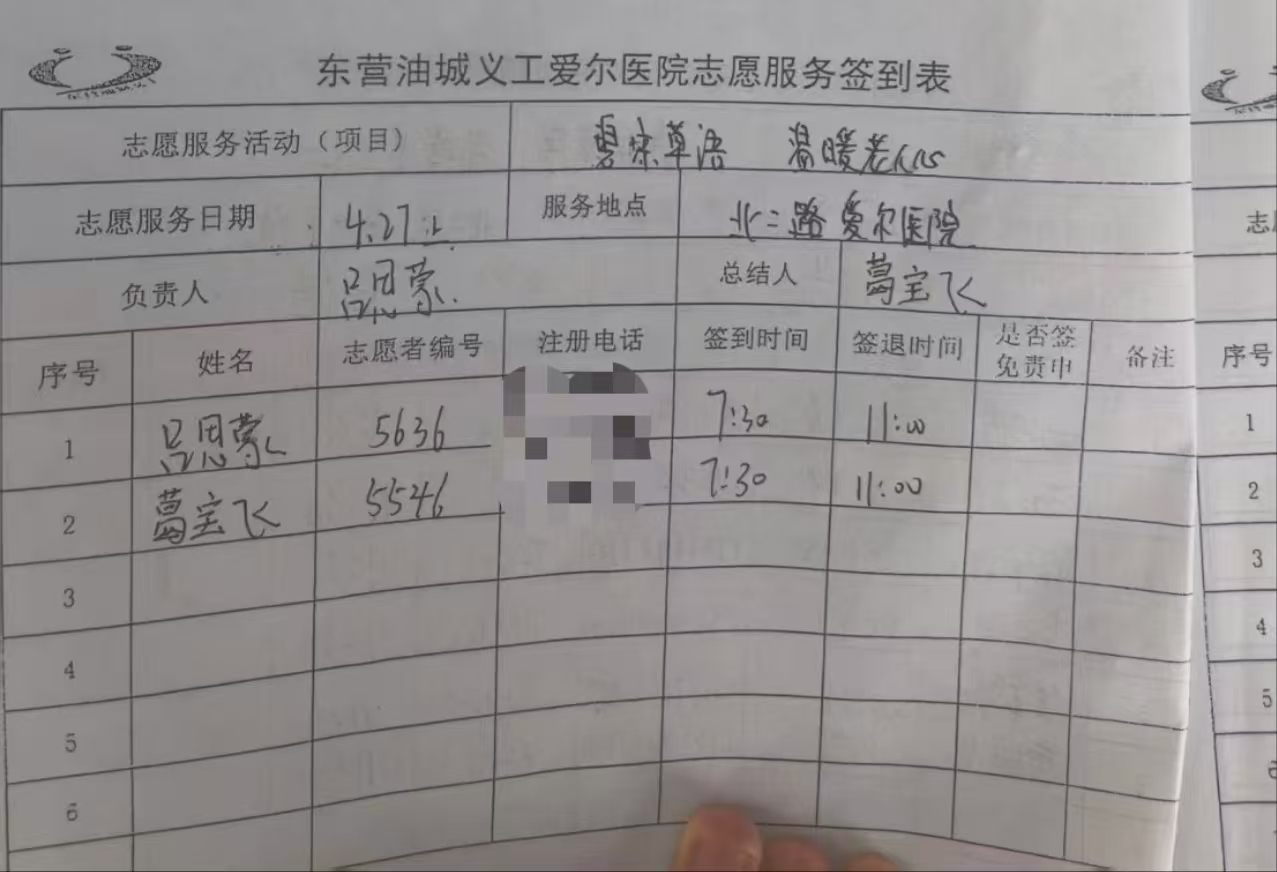 东营油城义工爱尔医院志愿服务签到表
志愿服务活动（项目） 草语 温暖老人心
志愿服务日期 4.27上 服务地点 北二路爱尔医院
负责人 吕恩蒙 总结人 葛宝飞
序号 姓名 志愿者编号 注册电话 签到时间 签退时间 是否签免费中 备注
1 吕恩蒙 5636 7:30 11:00
2 葛宝飞 5546 7:30 11:00
3
4
5
6
志
序号
1
2
3
4
5